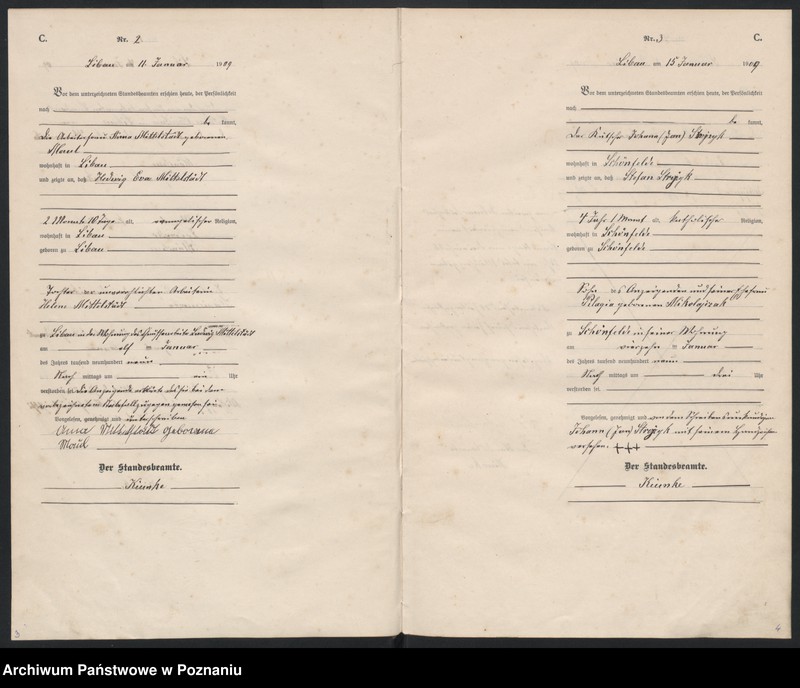 C.
Nr. 2
Liban am 11 Januar 1909
Vor dem unterzeichneten Standesbeamten erschien heute, der Persönlichkeit
nach
be kannt,
Die Arbeiterfrau Anna Mittelstädt geborenen
wohnhaft in Liban
und zeigte an, daß Hedwig Eva Mittelstädt
2 Monate 10 Tage alt, evangelischer Religion,
wohnhaft in Liban
geboren zu Liban
Tochter der unverehelichten Arbeiterin
Helene Mittelstädt
zu Liban in der Wohnung des Ludwig Mittelstädt
am elf ten Januar
des Jahres tausend neunhundert neun
Nach mittags um ein Uhr
verstorben sei. Die Anzeigende erklärte daß sie bei dem
zugegen gewesen sei
Vorgelesen, genehmigt und unterschrieben
Anna Mittelstädt geborene
Der Standesbeamte.
3
Nr. 3
C.
Liban am 15 Januar 1909
Vor dem unterzeichneten Standesbeamten erschien heute, der Persönlichkeit
nach
be kannt,
Der Kutscher Johann (Jan)
wohnhaft in Schönfelde
und zeigte an, daß Stefan
4 Jahr 1 Monat alt, katholische Religion,
wohnhaft in Schönfelde
geboren zu Schönfelde
Sohn des Anzeigenden und seiner Ehefrau
Pelagia geborenen Mikolajczak
zu Schönfelde in seiner Wohnung
am vierzehn ten Januar
des Jahres tausend neunhundert neun
Nach mittags um drei Uhr
verstorben sei.
Vorgelesen, genehmigt und von dem Schreibensunkundigen
Johann (Jan) mit seinem Handzeichen
versehen. +++
Der Standesbeamte.
4
Archiwum Państwowe w Poznaniu